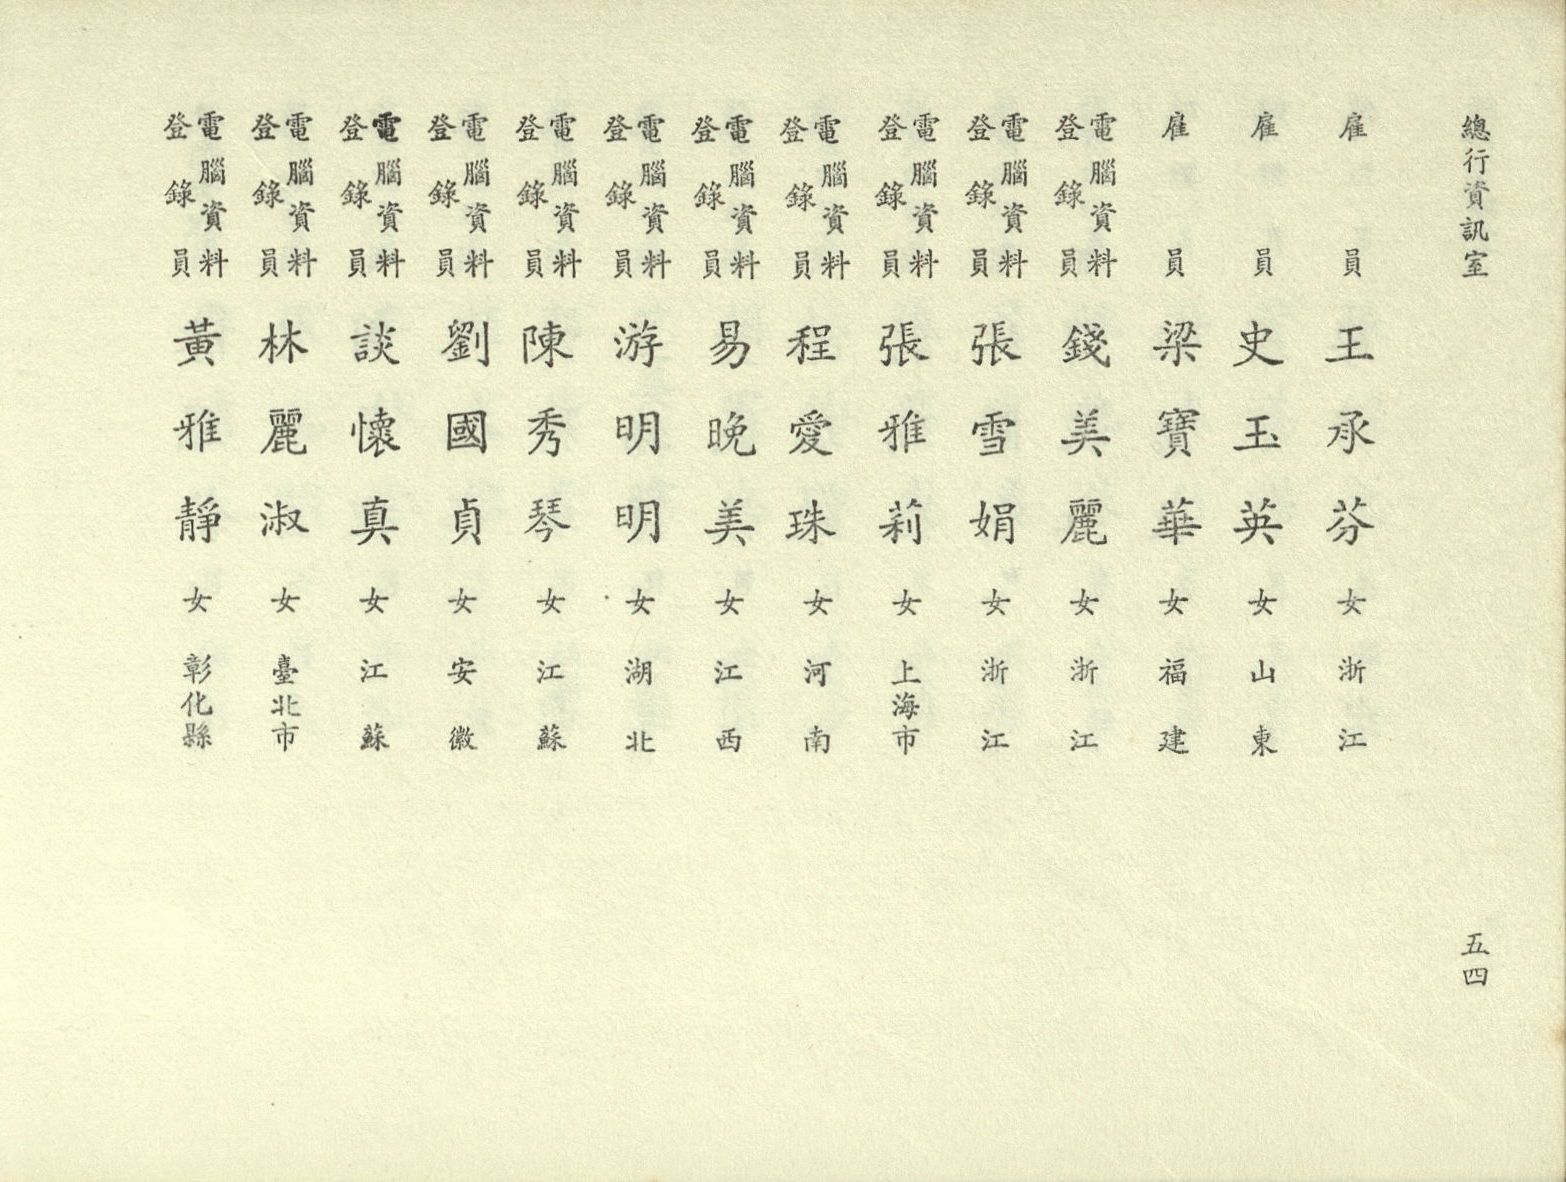 總行資訊室
五四
雇員 王承芬 女 浙江
雇員 史玉英 女 山東
雇員 梁寶華 女 福建
電腦資料登錄員 錢美麗 女 浙江
電腦資料登錄員 張雪娟 女 浙江
電腦資料登錄員 張雅莉 女 上海市
電腦資料登錄員 程愛珠 女 河南
電腦資料登錄員 易晚美 女 江西
電腦資料登錄員 游明明 女 湖北
電腦資料登錄員 陳秀琴 女 江蘇
電腦資料登錄員 劉國貞 女 安徽
電腦資料登錄員 談懷真 女 江蘇
電腦資料登錄員 林麗淑 女 臺北市
電腦資料登錄員 黃雅靜 女 彰化縣